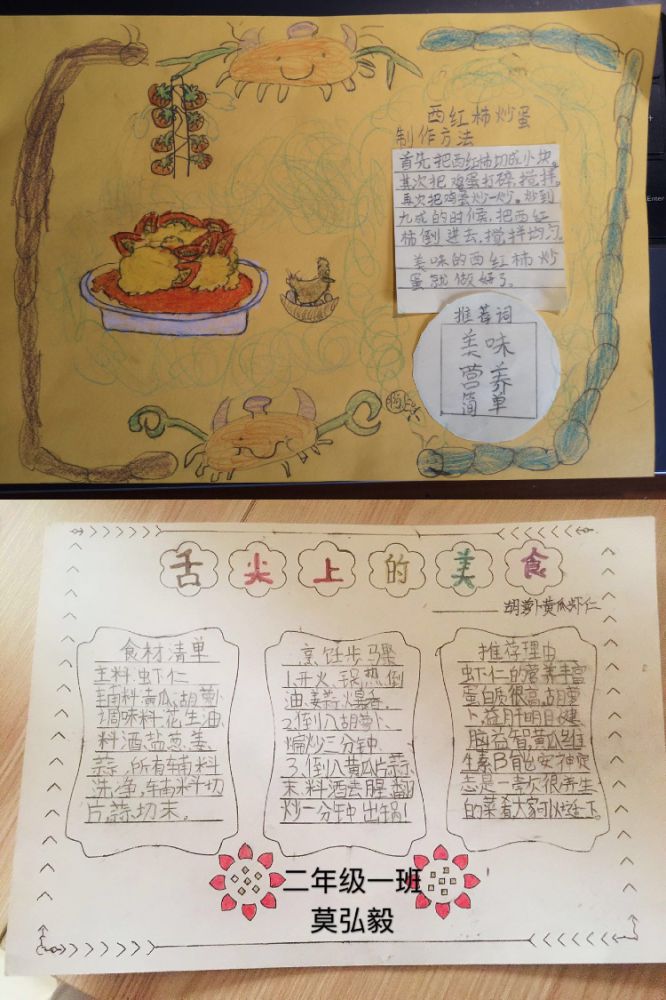 西红柿炒蛋
制作方法
首先把西红柿切成小块。
其次把鸡蛋打碎,搅拌。
再次把鸡蛋炒一炒。炒到
九成的时候,把西红
柿倒进去,搅拌均匀。
美味的西红柿炒
蛋就做好了。
推荐词
美味
营养
简单
舌尖上的美食
胡萝卜黄瓜虾仁
食材清单
主料:虾仁
辅料:黄瓜,胡萝卜
调味料:花生油
料酒,盐,葱,姜,
蒜,所有辅料
洗净,辅料切
片,蒜切末。
烹饪步骤
1.开火、锅热倒
油、姜蒜爆香、
2.倒入胡萝卜、
煸炒三分钟
3、倒入黄瓜片、蒜
末、料酒去腥、翻
炒一分钟出锅!
推荐理由
虾仁的营养丰富
蛋白质很高,胡萝
卜,益肝明目,健
脑益智,黄瓜维
生素B能安神定
志是一款很养生
的菜肴大家可以
二年级一班
莫弘毅